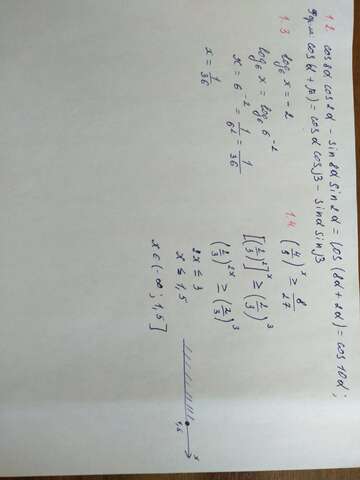 1.2. cos8α cos2α - sin8α sin2α = cos(8α + 2α) = cos10α;
cos(α + β) = cosα cosβ - sinα sinβ
1.3. log₆ x = -2
log₆ x = log₆ 6⁻²
x = 6⁻² = 1/6² = 1/36
x = 1/36
1.4. (4/9)ˣ ≥ 8/27
[(2/3)²]ˣ ≥ (2/3)³
(2/3)²ˣ ≥ (2/3)³
2x ≤ 3
x ≤ 1,5
1,5 x
x ∈ (-∞; 1,5]